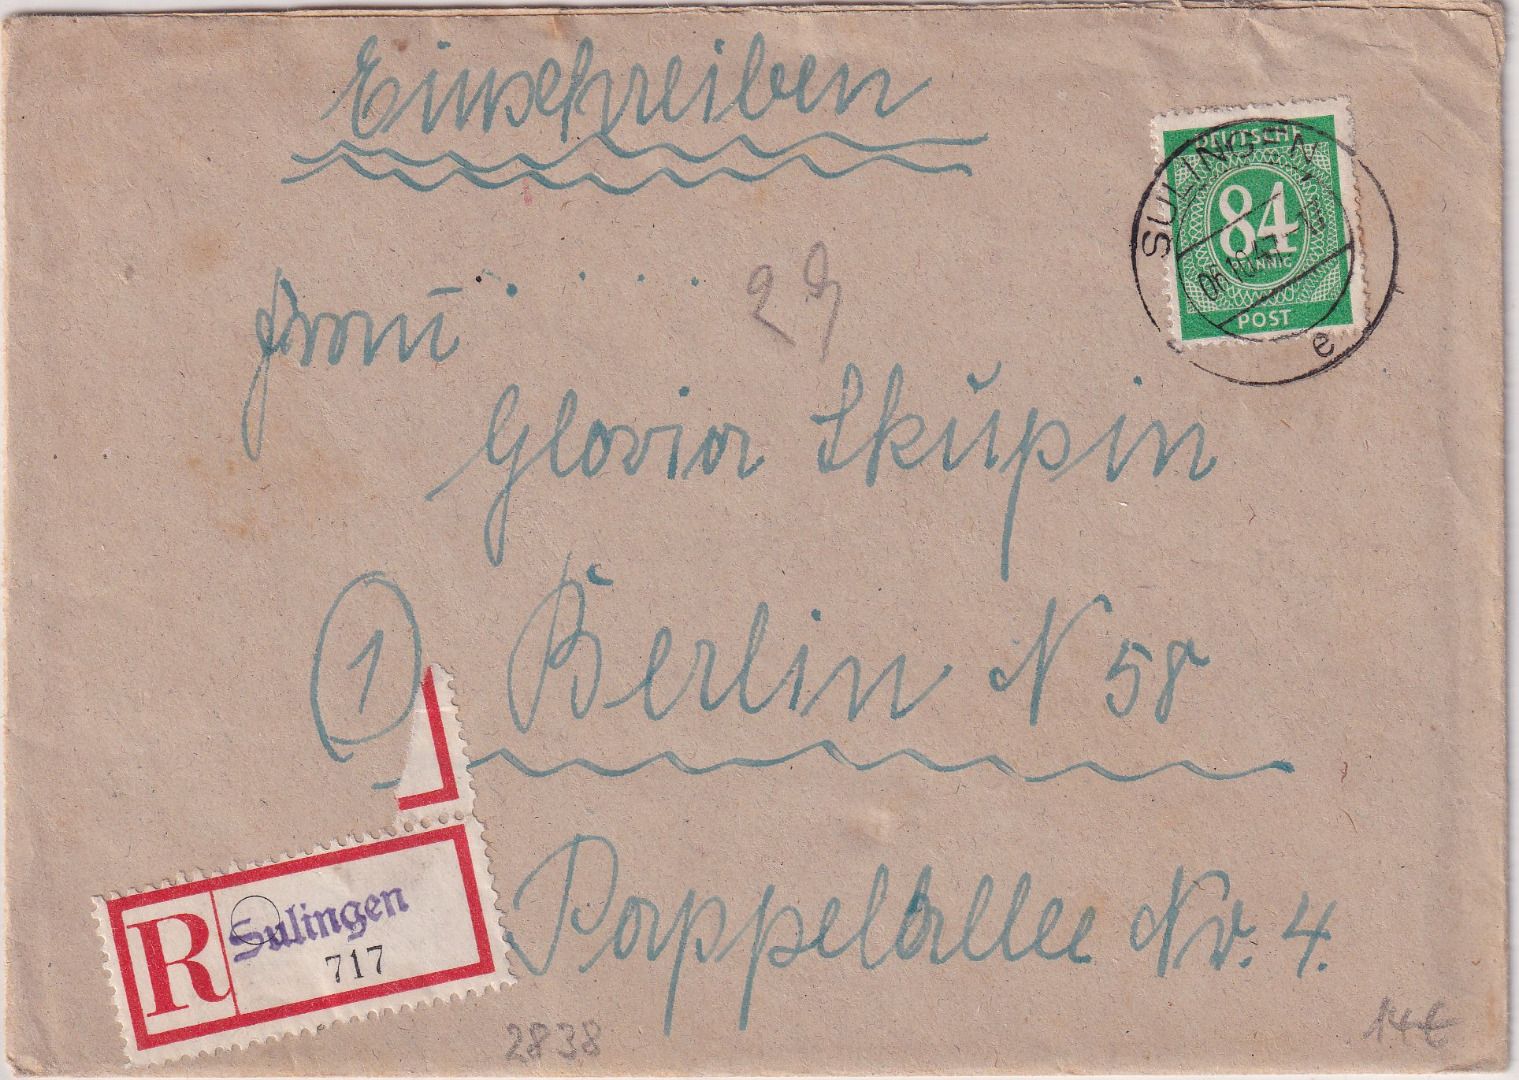 Einschreiben
DEUTSCHE
84
PFENNIG
POST
SULINGEN
06.10.47
e
29
Frau
Gloria Skupin
1 Berlin N 58
Pappelallee Nr. 4.
R Sulingen
717
2838
14€